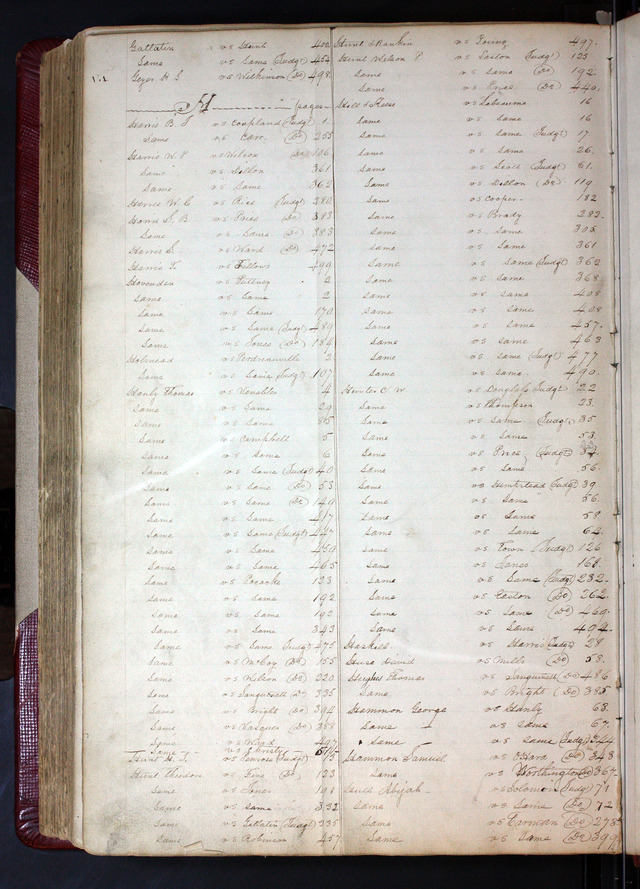 Gallatin vs Hunt 402
Same vs Same (Judgt) 454
Geyer H S vs Wilkinson (Do) 498
H pages
Harris B. vs Coupland (Judgt) 1
Same vs Carr (Do) 255
Harris W. P vs Nelson (Do) 106
Same vs 361
Same vs Same 362
Harris W. C vs Rice (Judgt) 280
Harris S. B vs Price (Do) 383
Same vs Same (Do) 383
Harris S. vs Ward (Do) 472
Harris T. vs Fellows 499
Hovenden vs 2
Same vs Same 2
Same vs Same 170
Same vs Same (Judgt) 489
Same vs Jones (Do) 184
Holmead vs 2
Same vs Same (Judgt) 107
Hanly Thomas vs Venables 4
Same vs Same 29
Same vs Same 85
Same vs Campbell 5
Same vs Same 6
Same vs Same (Judgt) 40
Same vs Same (Do) 53
Same vs Same (Do) 149
Same vs Same 417
Same vs Same (Judgt) 447
Same vs Same 450
Same vs Same 465
Same vs Pocock 123
Same vs Same 192
Same vs Same 192
Same vs Same 343
Same vs Same (Judgt) 475
Same vs McCoy (Do) 155
Same vs Nelson (Do) 220
Same vs Sanguinett (Do) 335
Same vs Bright (Do) 394
Same vs Vasques (Do) 388
Same vs Ward 497
Same vs Christy 515
Hunt W. T. vs Penrose (Judgt) 15
Hunt Theodore vs (Do) 123
Same vs Jones 198
Same vs Same 332
Same vs Gallatin (Judgt) 235
Same vs Robinson 457
Hunt & Rankin vs Young 497
Hunt Wilson P. vs Easton (Judgt) 123
Same vs Same (Do) 192
Same vs Price (Do) 440
Hill & vs Labeaume 16
Same vs Same 16
Same vs Same (Judgt) 17
Same vs Same 26
Same vs Scott (Judgt) 61
Same vs (Do) 119
Same vs Cooper 182
Same vs Brady 282
Same vs Same 305
Same vs Same 361
Same vs Same (Judgt) 362
Same vs Same 368
Same vs Same 408
Same vs Same 408
Same vs Same 457
Same vs Same 463
Same vs Same (Judgt) 477
Same vs Same 490
Hunter C. W vs (Judgt) 22
Same vs Thompson 23
Same vs Same (Judgt) 35
Same vs Same 53
Same vs Price (Judgt) 37
Same vs Same 56
Same vs Hempstead (Judgt) 39
Same vs Same 56
Same vs Same 58
Same vs Same 64
Same vs Town (Judgt) 126
Same vs Janes 161
Same vs Same (Judgt) 232
Same vs Easton (Do) 262
Same vs Same (Do) 460
Same vs Same 404
Haskell vs Harris (Judgt) 28
David vs Mills (Do) 58
Hughs Thomas vs Sanguinett (Do) 486
Same vs Bright (Do) 385
Hammon George vs Hanly 63
Same vs Same 67
Same vs Same (Judgt) 344
Hammon Samuel vs OHara (Do) 348
Same vs Worthington (Do) 367
Abijah vs Solomon (Judgt) 71
Same vs Same (Do) 72
Same vs Carman (Do) 278
Same vs Same (Do) 399